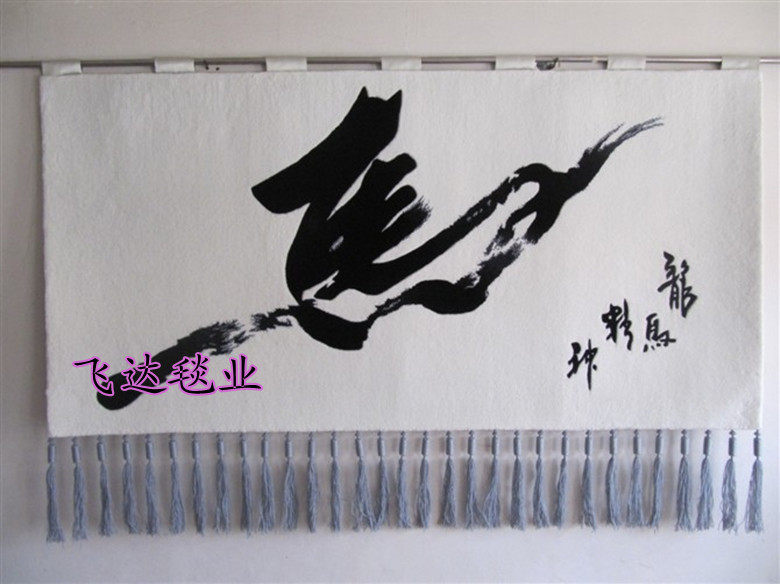 馬
龍馬精神
飞达毯业